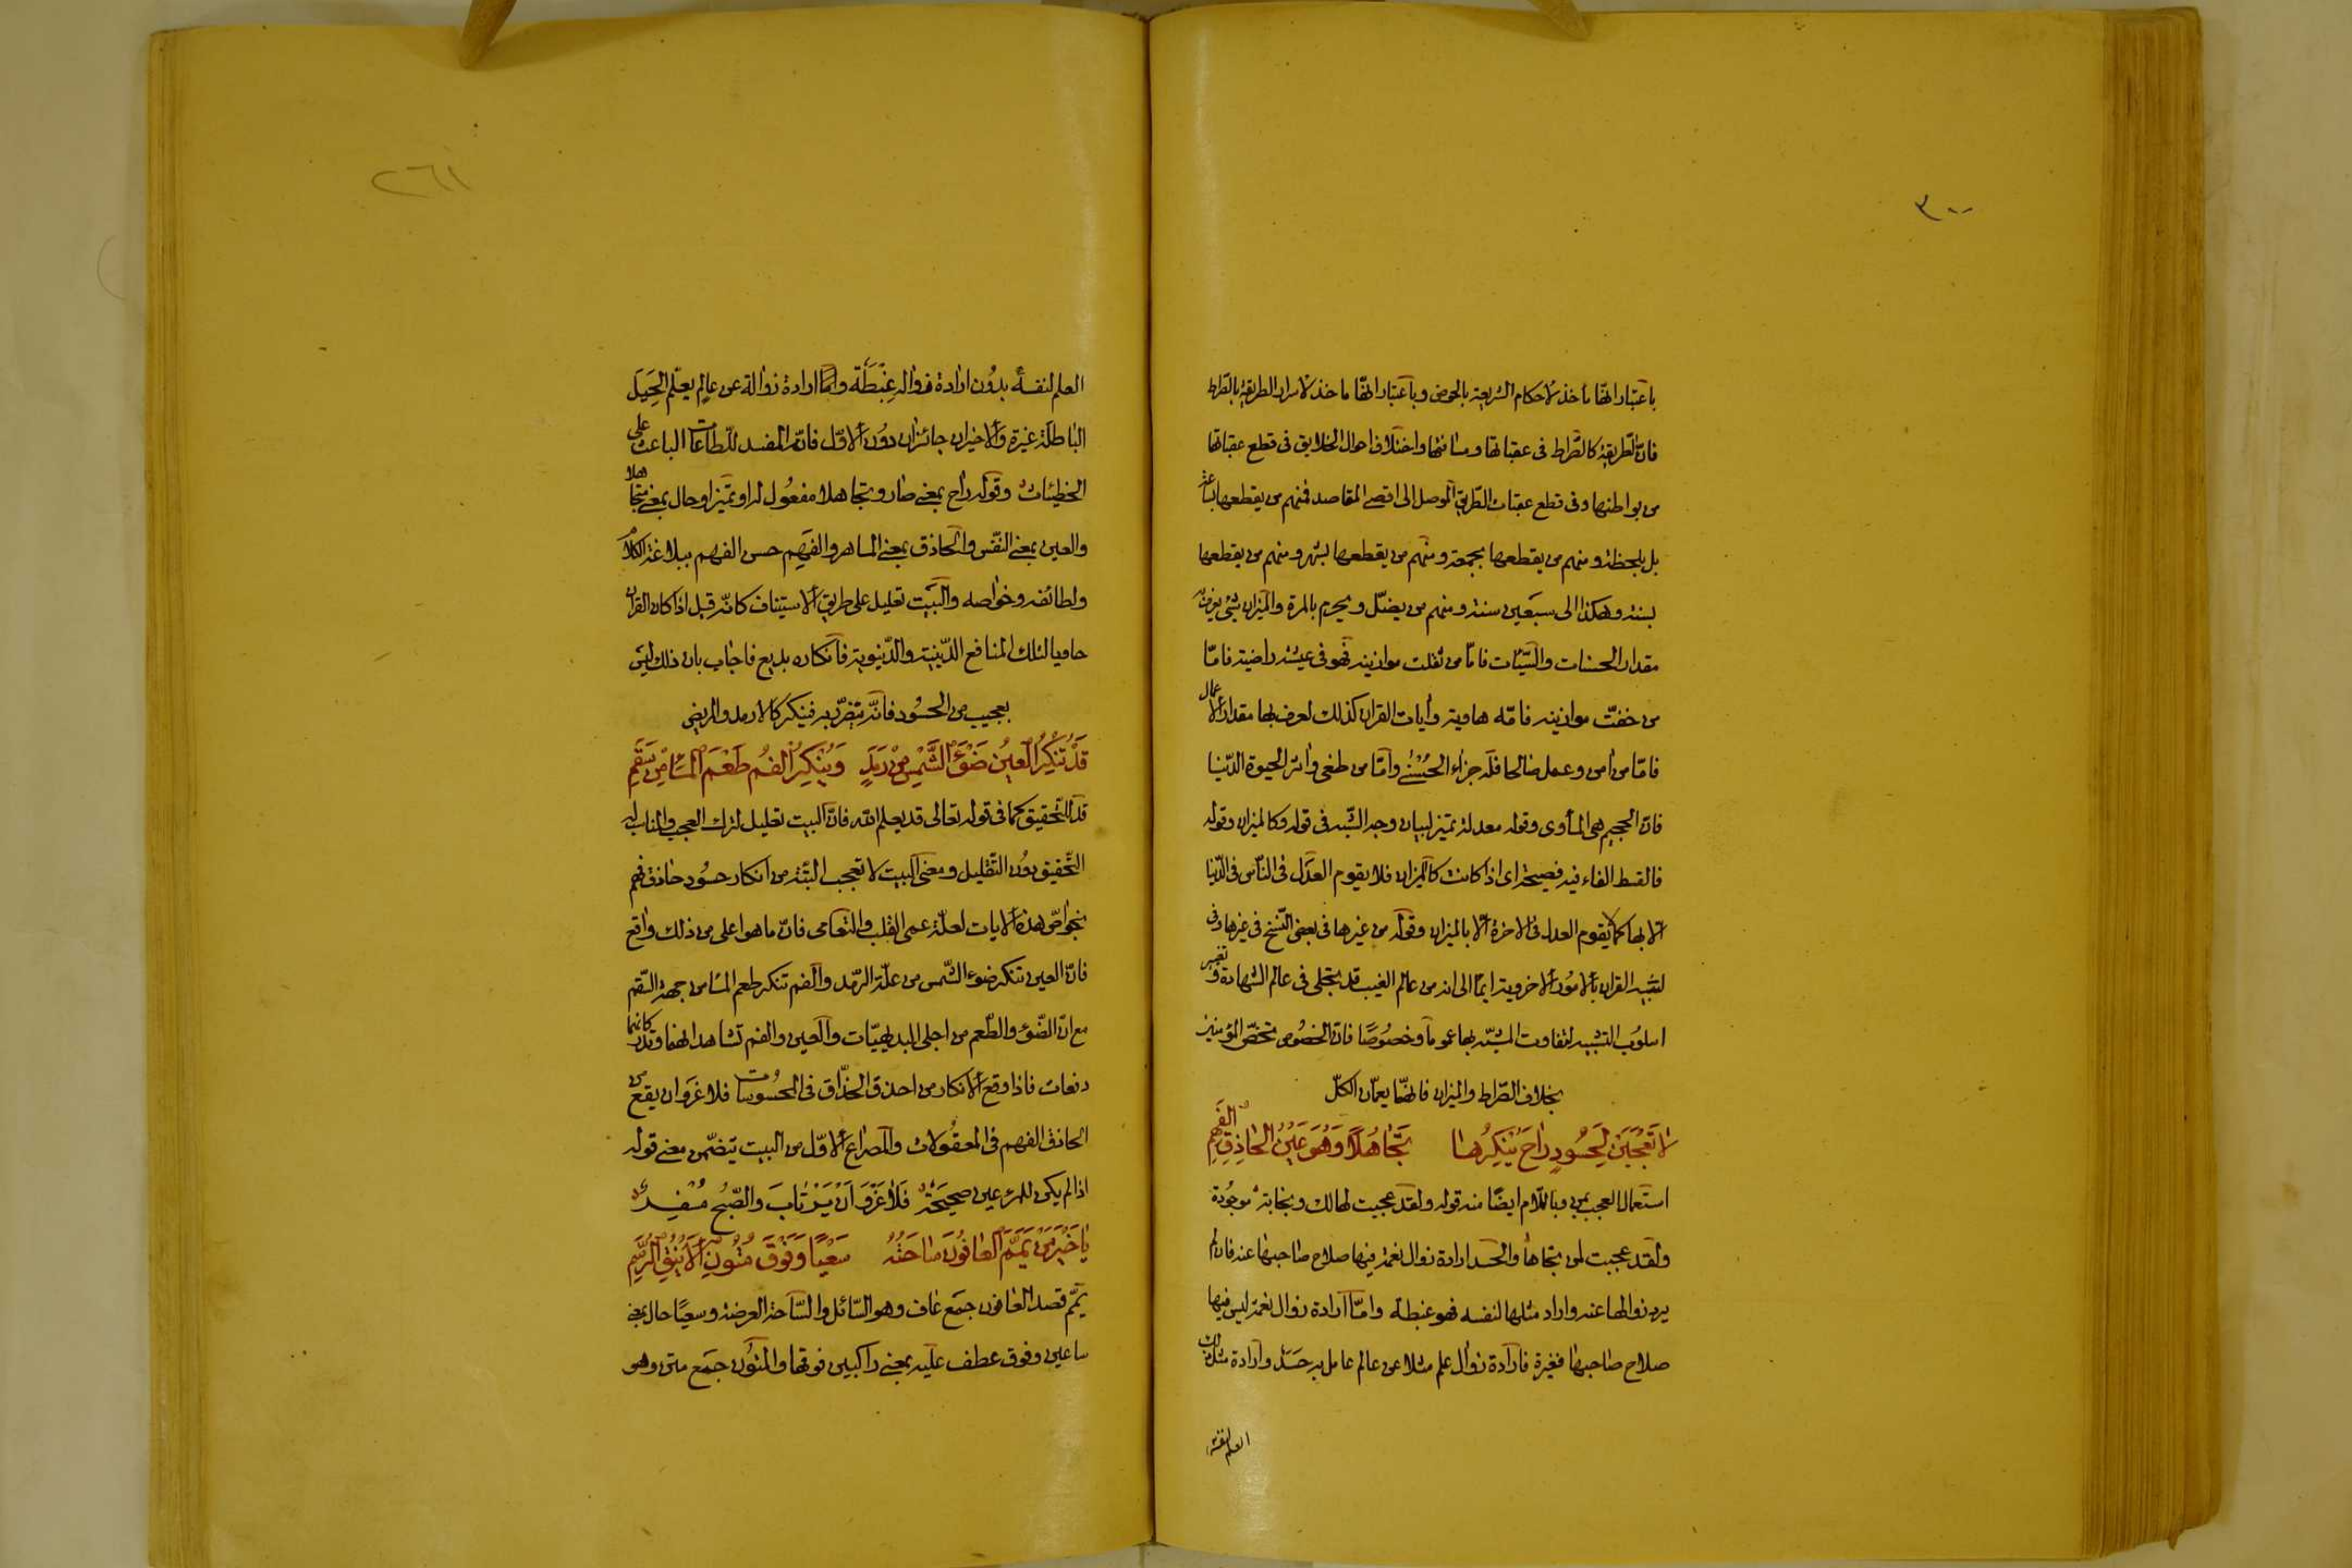 ٣٠٠
باعتبار انها مأخذ لاحكام الشريعة بالحوض وباعتبار انها مأخذ لاسرار الطريقة بالصراط
فان الطريقة كالصراط فى عقباتها ومسافتها واختلاف احوال الخلايق فى قطع عقباتها
من بواطنها وفى قطع عقبات الطريق الموصل الى اقصى المقاصد فمنهم من يقطعها بساعة
بل بلحظة ومنهم من يقطعها بجمعة ومنهم من يقطعها بشهر ومنهم من يقطعها
بسنة وهكذا الى سبعين سنة ومنهم من يضل ويحرم بالمرة والميزان شئ يعرف به
مقدار الحسنات والسيئات فامّا من ثقلت موازينه فهو فى عيشة راضية فامّا
من خفت موازينه فامّه هاوية وأيات القران كذلك لعرف بها مقدار الاعمال
فامّا من امن وعمل صالحا فله جزاء الحُسْنى وامّا من طغى واثر الحيوة الدّنيا
فان الجحيم هى المأوى وقوله معدلة تميز لبيان وجه الشبه فى قوله وكالميزان وقوله
فالقسط الفاء فيه فصيحة اى اذا كانت كالميزان فلا يقوم العدل فى الناس فى الدّنيا
الّا بها كما لا يقوم العدل فى الاخرة الّا بالميزان وقوله من غيرها فى بعض النّسخ فى غيرها وفى
تشبيه القران بالامُور الاخروية ايماً الى انه من عالم الغيب قد تجلى فى عالم الشهادة وتغيير
اسلوُب التشبيه لتفاوت المشبّه بها عموماً وخصوُصًا فان الحَوض مختصّ المؤمنين
بخلاف الصّراط والميزان فانّهما يعمّان الكلّ
لَا تَعْجَبَنْ لِحَسُودٍ رَاحَ يُنْكِرُهَا تَجَاهُلاً وَهُوَ عَيْنُ الحَاذِقِ الفَهِمِ
استعمال العجب بمن وباللّام ايضًا منه قوله ولقد عجبت لهالك ونجاته موجُودة
ولقد عجبت لمن نجاها والحسد ارادة زوال نعمة فيها صلاح صاحبها عنه فان لم
يرد زوالها عنه واراد مثلها لنفسه فهو غبطة وامّا ارادة زوال نعمة ليس فيها
صلاح صاحبها فغيرة فارادة زوال علم مثلا عن عالم عامل به حَسَد وارادة مثل ذلك
العلم لنفسه
٢٦١
العلم لنفسه بدُون ارادة زواله غِبْطَة وامّا ارادة زواله عن عالم يعلّم الحِيَل
الباطلة غيرة والاخيران جائزان دوُن الاوّل فانّه المفسد للطاعات الباعث على
الخطيئات وقوله راح بمعنى صار وتجاهلا مفعُول له او تميز او حال بمعنى متجاهلا
والعين بمعنى النّفس والحاذق بمعنى الماهر والفَهِم حسن الفهم ببلاغة الكلام
ولطائفه وخواصه والبيت تعليل على طريق الاستيناف كانّه قيل اذا كان القران
حاويا لتلك المنافع الدّينية والدّنيوية فانكاره بديع فاجاب بان ذلك ليس
بعجيب من الحسُود فانّه يتضرّر به فينكر كالارمد والمريض
قَدْ تُنْكِرُ العَيْنُ ضَوْءَ الشَّمْسِ مِنْ رَمَدٍ وَيُنْكِرُ الفَمُ طَعْمَ المَاءِ مِنْ سَقَمِ
قد للتّحقيق كما فى قوله تعالى قد يعلم الله فانّ البيت تعليل لترك العجب والمناسب له
التّحقيق دوُن التّقليل ومعنى البيت لا تعجب البتّة من انكار حسُود حاذق فهم
بخواصّ هذه الايات لعلّة عمى القلب والتعامى فانّ ما هو اعلى من ذلك واقع
فانّ العين تنكر ضوء الشّمس من علّة الرّمد والفم تنكر طعم الماء من جهة السّقم
مع انّ الضّوء والطّعم من اجلى البديهيّات والعين والفم تشاهدانهما وتدركانهما
دفعات فاذا وقع الانكار من احذق الحذّاق فى المحسُوسات فلا غَرْو ان يقع من
الحاذق الفهم فى المعقُولات والمصراع الاوّل من البيت يتضمّن معنى قوله
اذا لم يكن للمرء عين صحيحَة فَلاَ غَرْوَ اَنْ يَرْتَابَ والصّبْح مُسْفِر
يَا خَيْرَ مَنْ يَمَّمَ العَافُونَ سَاحَتَهُ سَعْيًا وَفَوْقَ مُتُونِ الأَيْنُقِ الرُّسُمِ
يمّم قصد العافون جمَع عاف وهو السّائل والسّاحة العرصة وسعيًا حال بمعنى
ساعين وفوق عطف عليه بمعنى راكبين فوقها والمتوُن جمَع متن وهو